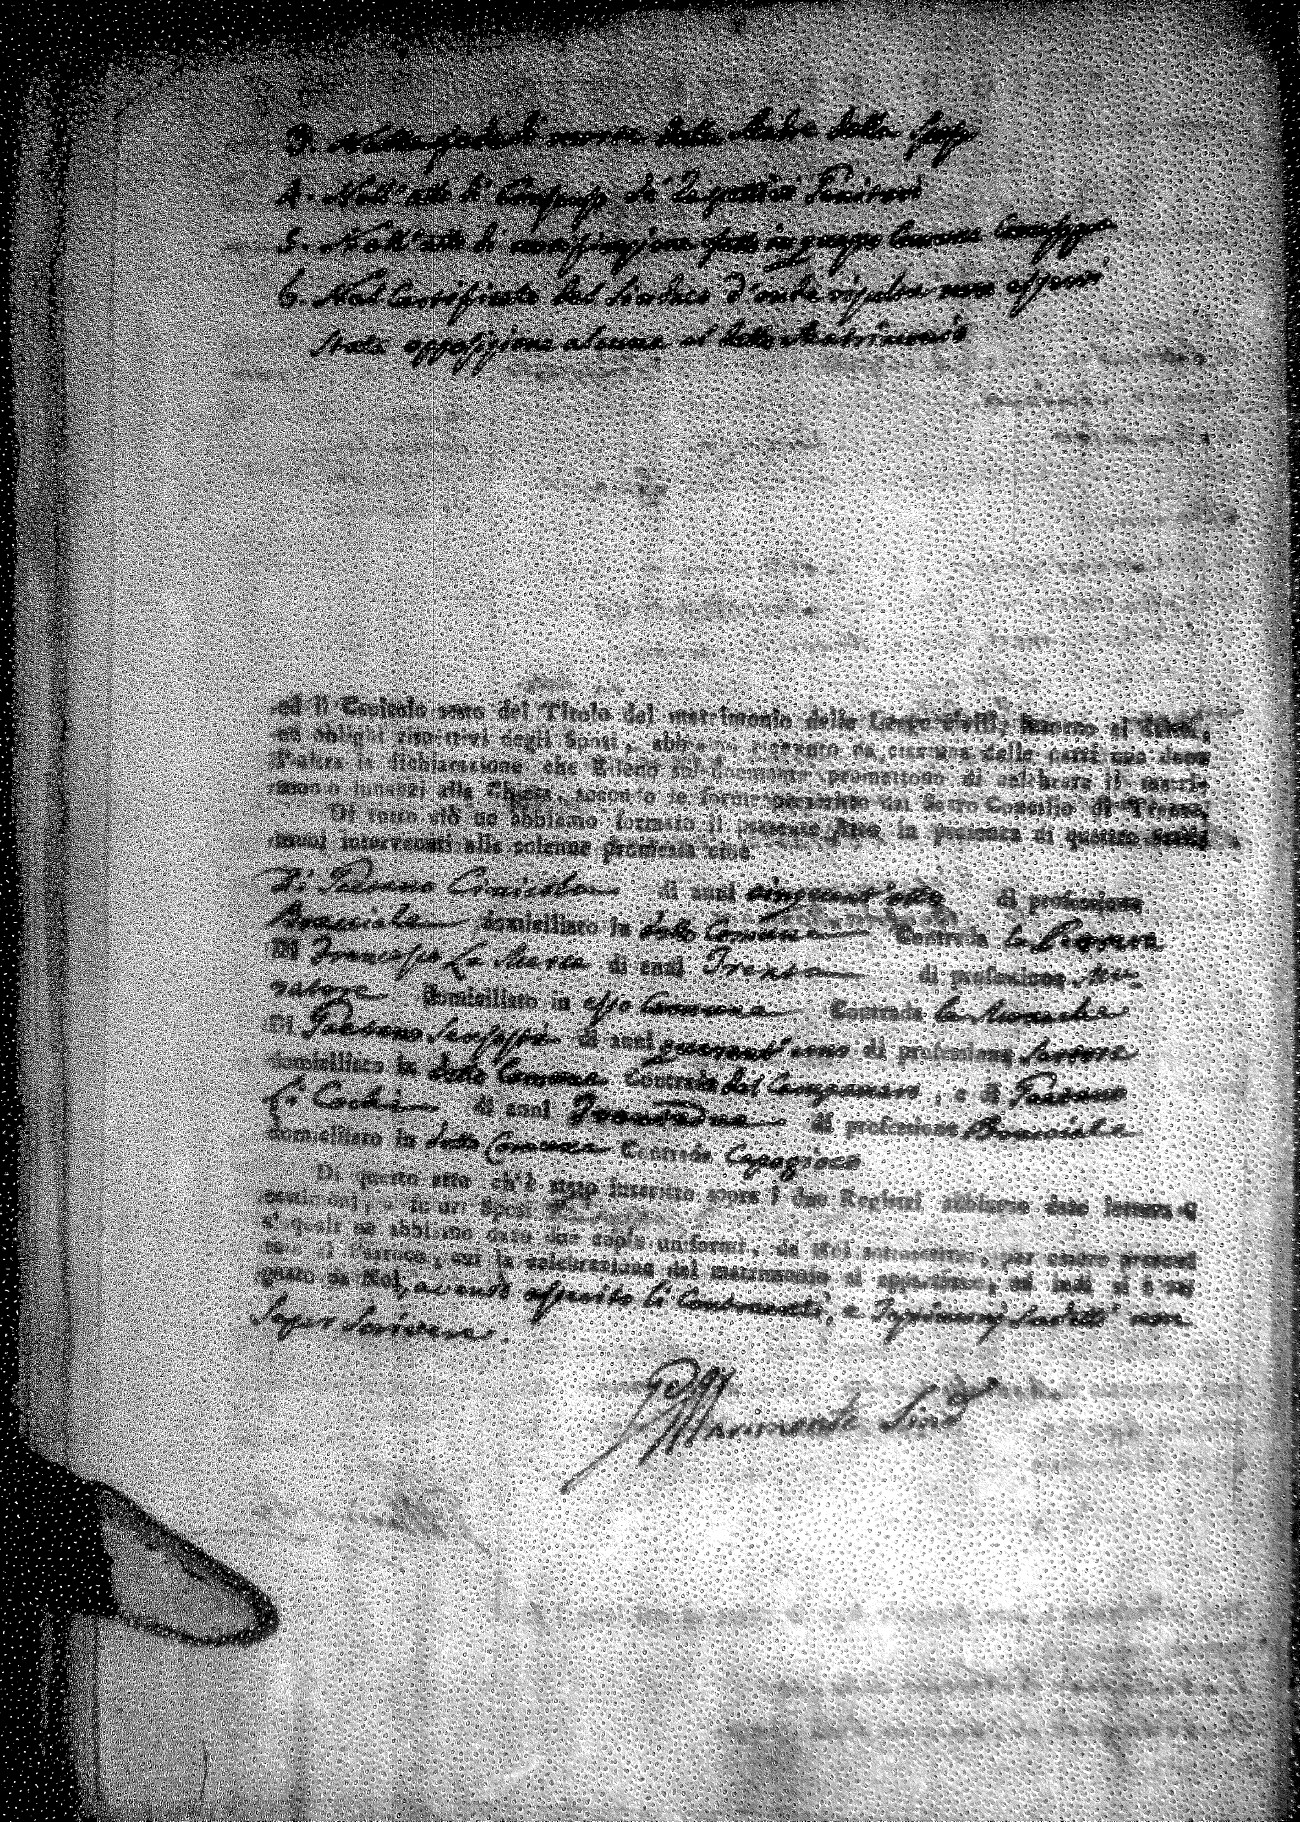 3. Nella fede di morte della Madre della sposa
4. Nell'atto di Consenso de' rispettivi Genitori
5. Nell'atto di notificazione fatto in questo Comune
6. Nel Certificato del Sindaco d'onde risulta non esservi
stata opposizione alcuna al detto Matrimonio
ed il Capitolo sesto del Titolo del matrimonio delle Leggi civili, intorno ai dritti,
ed obblighi rispettivi degli Sposi, abbiamo ricevuto da ciascuna delle parti una dopo
l'altra la dichiarazione che Elleno solennemente promettono di celebrare il matri-
monio innanzi alla Chiesa, secondo le forme prescritte dal Sacro Concilio di Trento.
Di tutto ciò ne abbiamo formato il presente Atto in presenza di quattro testi-
monj intervenuti alla solenne promessa cioè
di Gaetano di anni cinquant'otto di professione
Bracciale domiciliato in detto Comune Contrada
Di Francesco La Marca di anni Trenta di professione
domiciliato in esso Comune Contrada le Monache
Di Gaetano di anni quarant'uno di professione Sartore
domiciliato in detto Comune Contrada del Campanaro, e di Gaetano
Li Cochi di anni Trentadue di professione Bracciale
domiciliato in detto Comune Contrada Capogioco
Di questo atto ch'è stato inserito sopra i due Registri abbiamo dato lettura a'
testimonj, e futuri Sposi
a' quali ne abbiamo dato due copie uniformi, da Noi sottoscritte, per essere presen-
tate al Parroco, cui la celebrazione del matrimonio si appartiene, ed indi si è se-
gnato da Noi, avendo asserito li Contraenti, e Testimonj sudetti non
saper scrivere.
Marimonte Sind.o